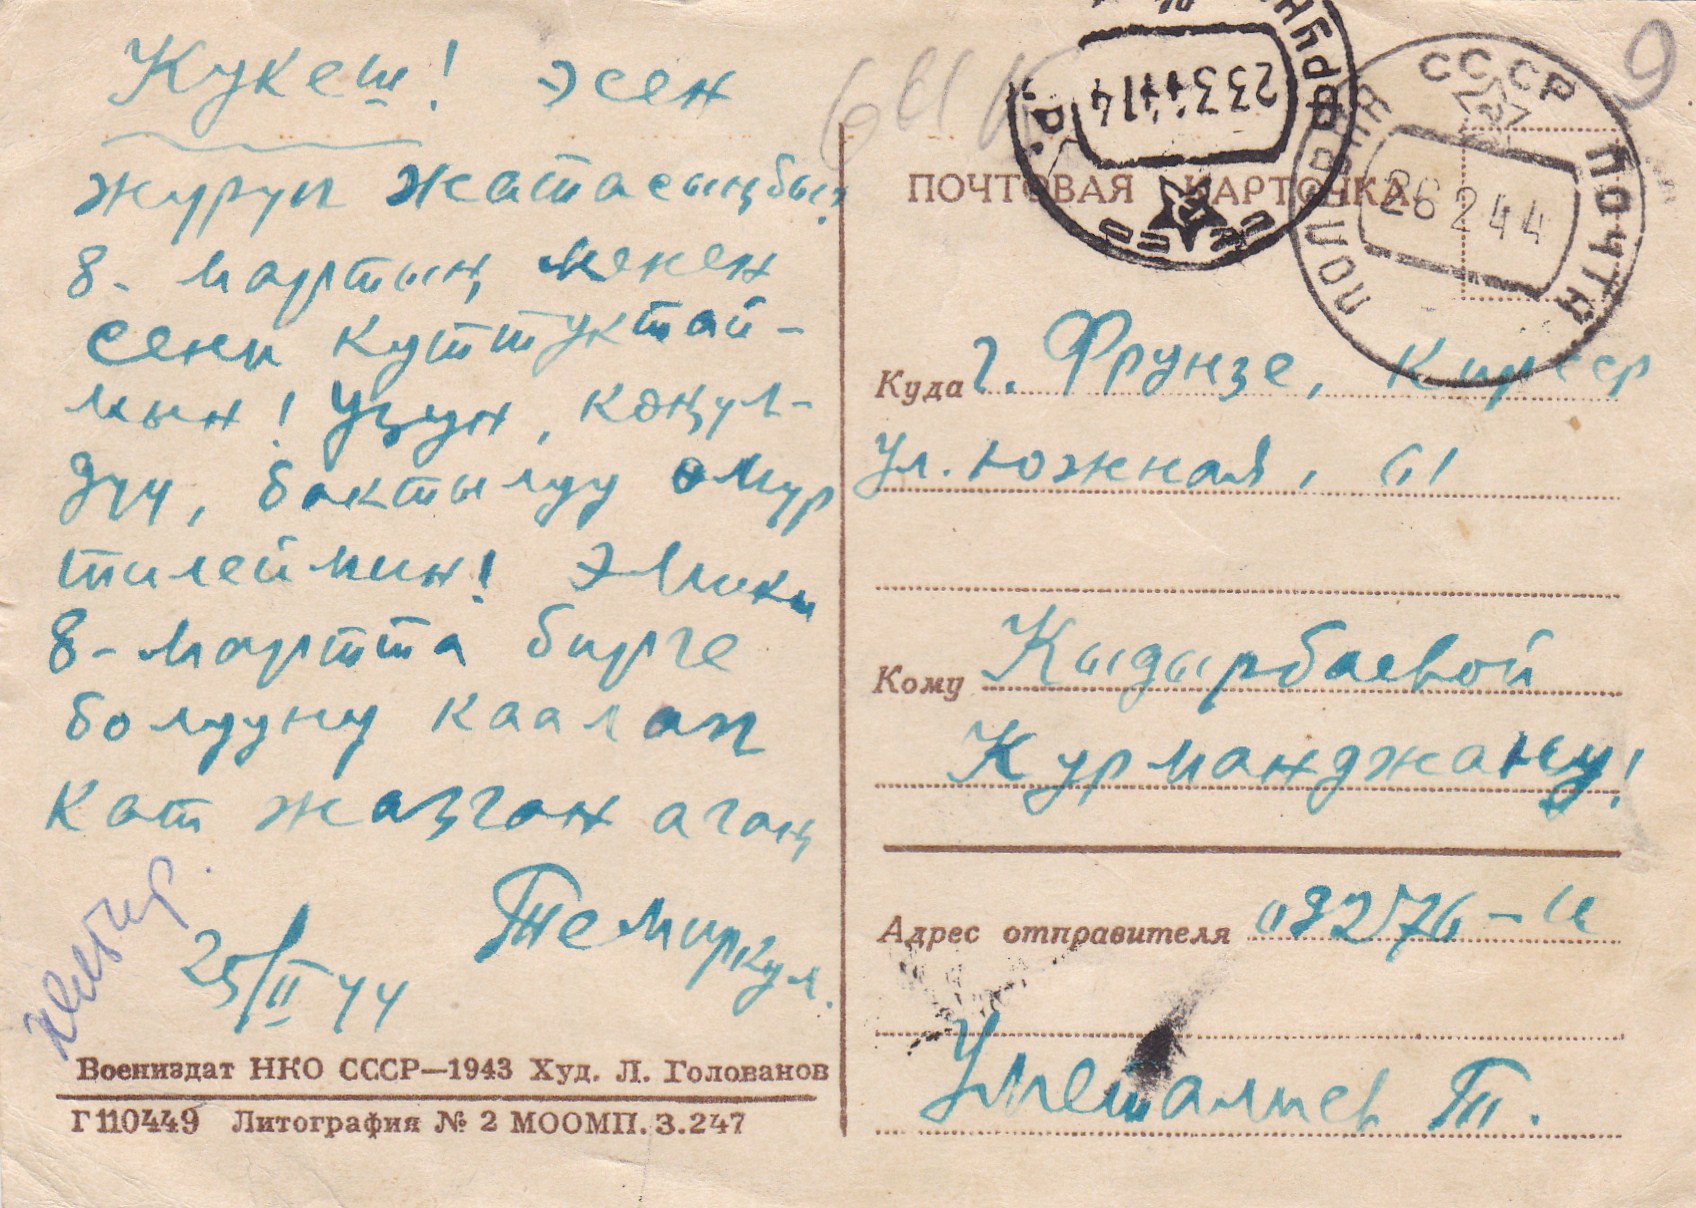 Кукеш! Эсен
журуп жатасыңбы?
8- мартың менен
сени куттуктай-
мын! Узун, көңүл-
дүү, бактылуу өмүр
тилеймин! Эмики
8-мартта бирге
болууну каалап
кат жазган агаң
Темиркул.
25/II 44
Воениздат НКО СССР—1943 Худ. Л. Голованов
Г110449 Литография № 2 МООМП. З.247
9
СССР
ПОЛЕВАЯ ПОЧТА
26 2 44
23 3 44 14
ФРУНЗЕ
ПОЧТОВАЯ КАРТОЧКА
Куда г. Фрунзе, Кирсср
ул. Южная, 61
Кому Кыдырбаевой
Курманджану!
Адрес отправителя 03276-И
Уметалиев Т.